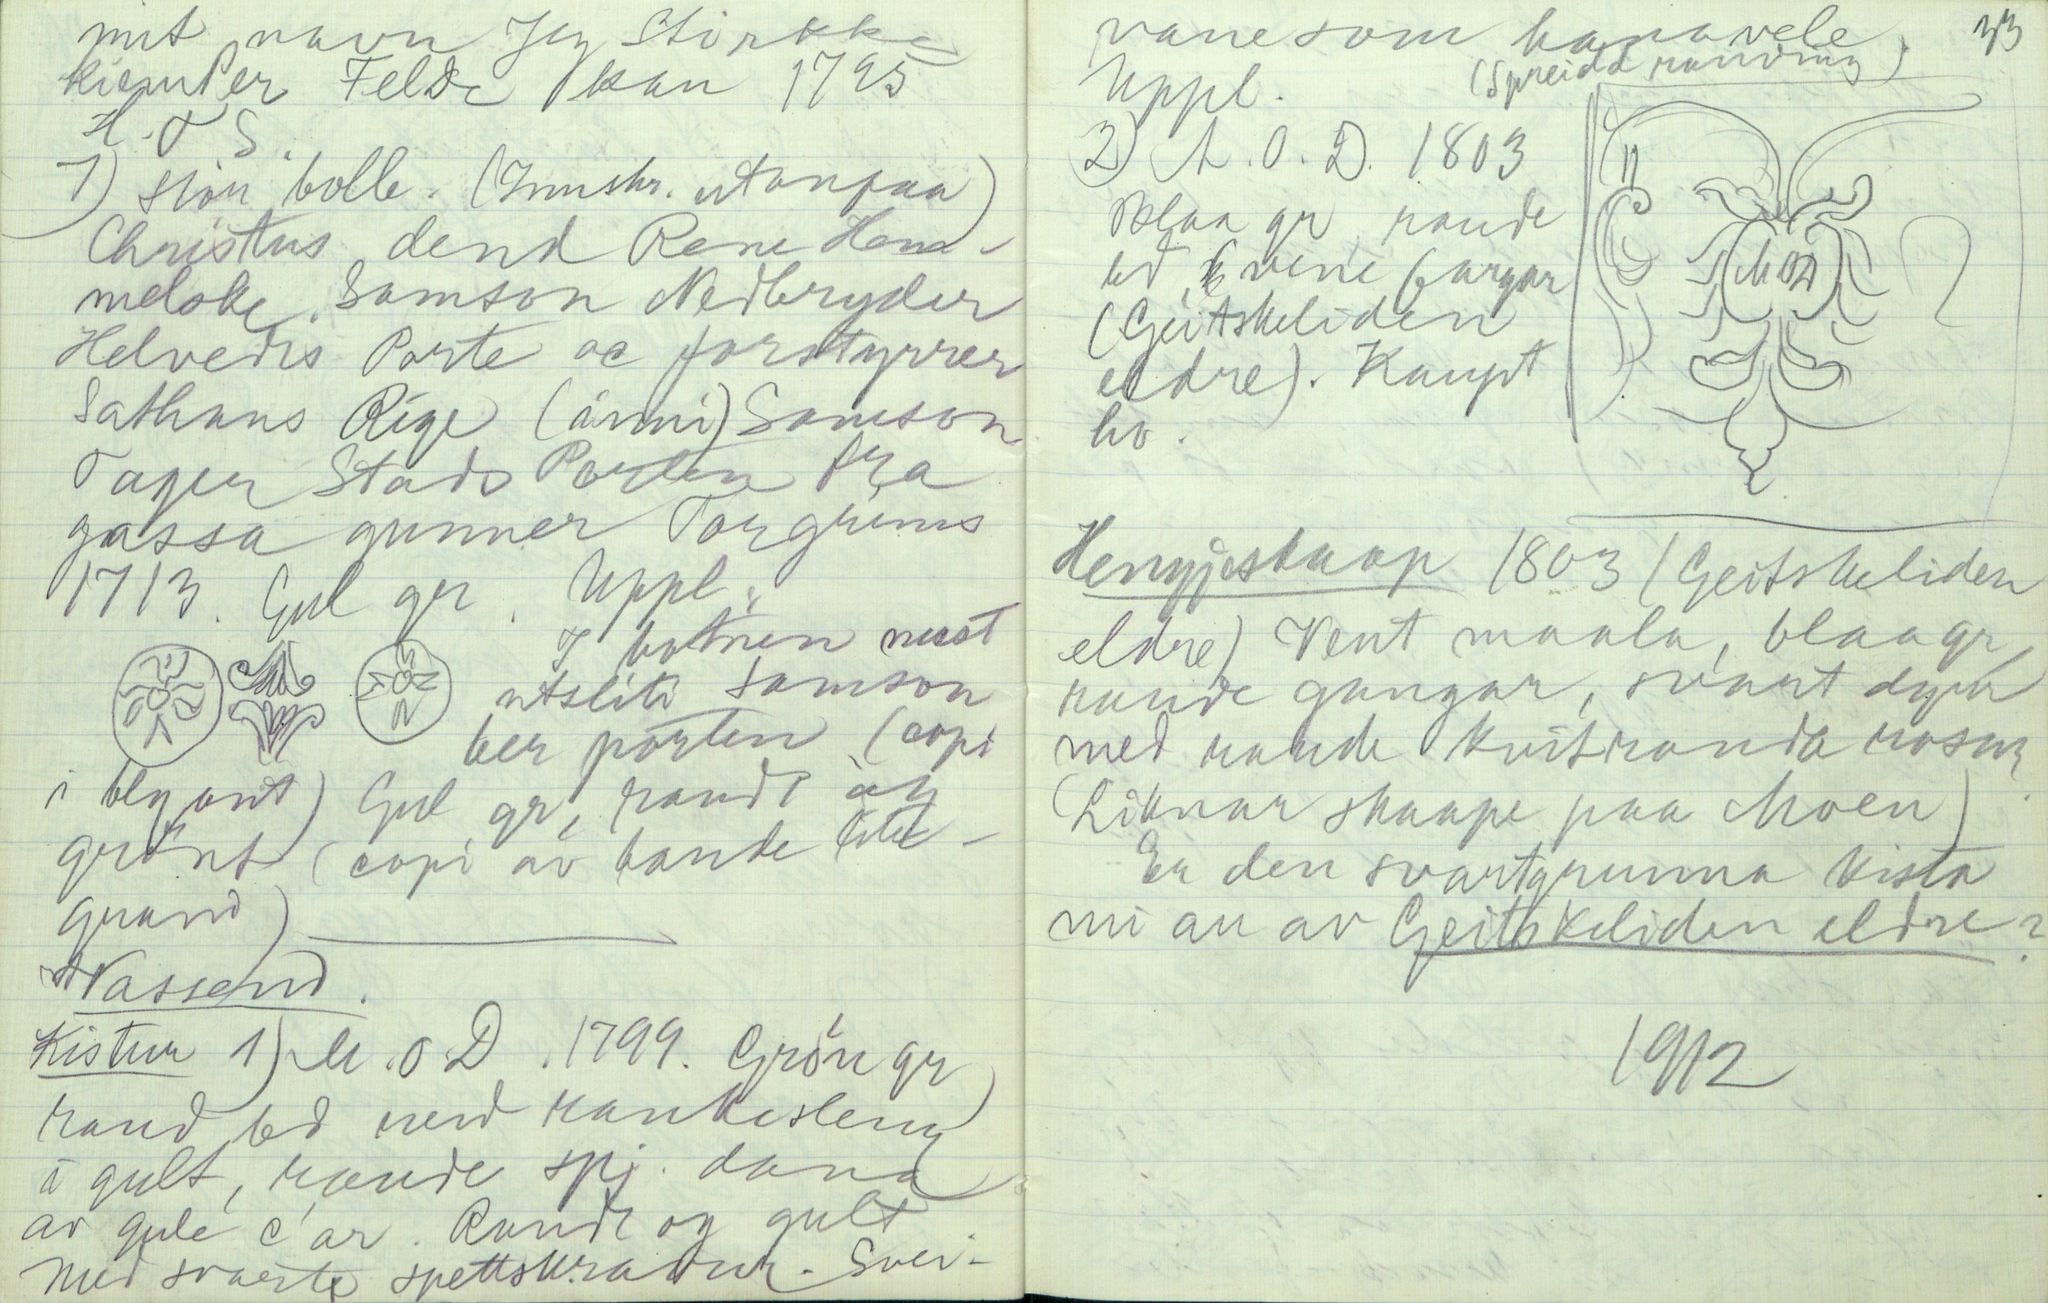 mit navn Jeg Stirkke
kiemPer Felde kan 1795
H. T S.
7) stor bolle. (Innskr. utanpaa)
Christus dend Rene Hem-
melske Samson Nedbryder
Helvedis Porte oc forstyrrer
Sathans Rige (inni) Samson
Tager Stads Porten fra
gassa gunner Torgrims
1713. Gul gr. Uppl.
I botnen mest
utsliti Samson
ber porten (copi
i blyant) Gul gr, raudt og
grönt (copi av bande
grand)
Vassend.
Kistur 1) M.O.D. 1799. Grön gr
raud bd med rankesleng
i gult, raude spj. dana
av gule c'ar. Raudt og gult
med svarte spettskradur. Svei-
33
vane som hanavele.
(Spreidd randing)
Uppl.
2) M.O.D. 1803
Blaa gr raude
bd, vene fargar
(Geitskeliden
eldre). Kaupt
ho.
M O D
Hengjeskaap 1803 (Geitskeliden
eldre) Vent maala, blaa gr,
raude gangar, svart dyr
med raude kvitranda rosur
(Liknar skaape paa Moen)
Er den svartgrunna kista
mi au av Geitskeliden eldre?
1912